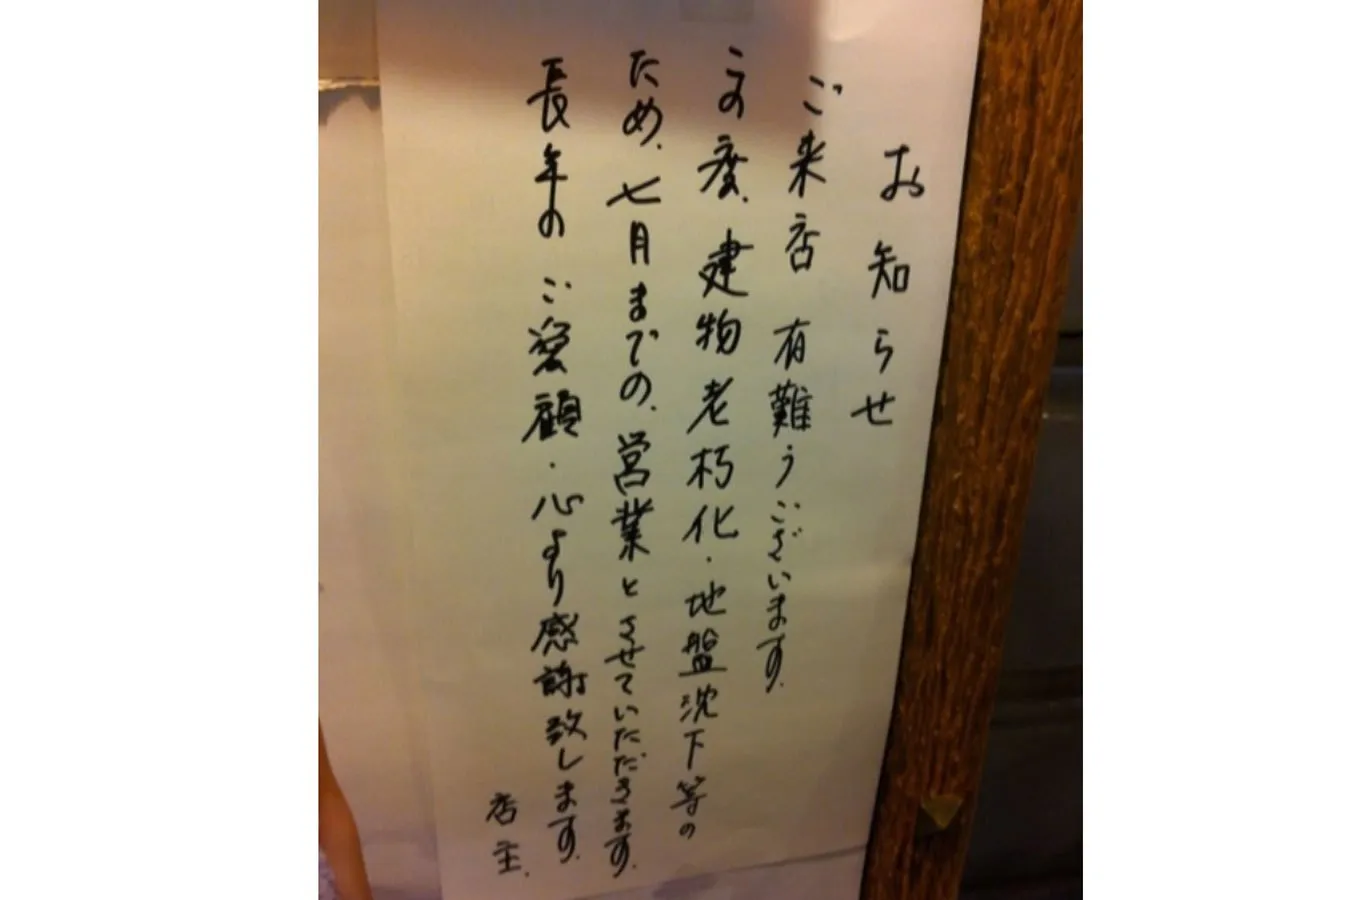 お知らせ
ご来店有難うございます.
この度、建物老朽化・地盤沈下等の
ため、七月までの、営業とさせていただきます.
長年のご愛顧・心より感謝致します.
店主.